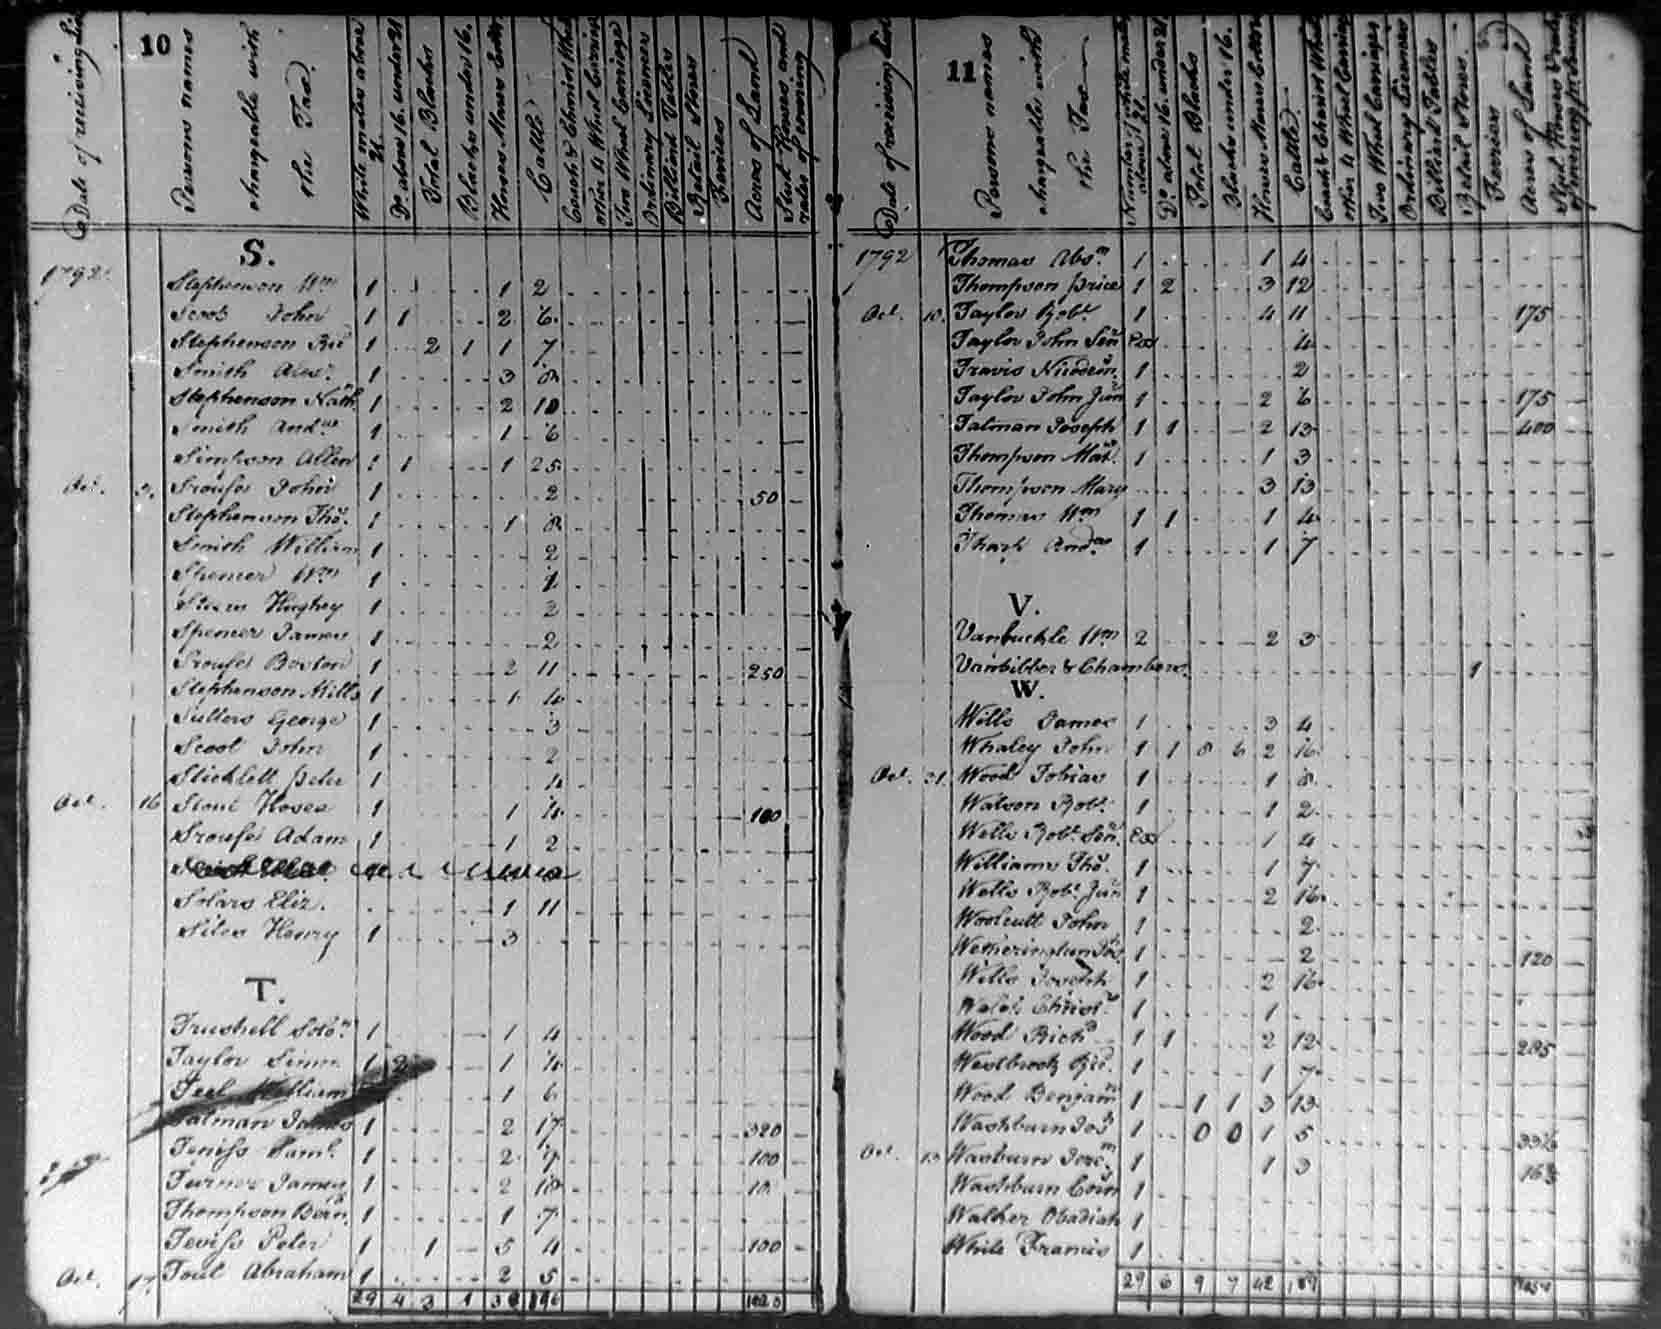 10
Date of receiving
Persons names chargeable with the Tax.
White males above 21.
Do above 16. under 21
Total Blacks
Blacks under 16.
Horses Mares
Cattle
Coach & Chariot
other 4 Wheel Carriage
Two Wheel Carriage
Ordinary Licenses
Billiard Tables
Retail Stores
Acres of Land
Stud Horses and rates of covering
S.
1792
Stephenson Wm 1 1 2
Scoot John 1 1 2 6
Stephenson Ric 1 2 1 1 7
Smith Alexr. 1 3 8
Stephenson Nath. 1 2 10
Smith Andw 1 1 6
Simpson Allen 1 1 1 25
Oct. Sroufe John 1 2 50
Stephenson Tho. 1 1 8
Smith William 1 2
Spencer Wm 1 1
Hughey 1 2
Spencer James 1 2
Sroufe Boston 1 2 11 250
Stephenson Mills 1 1 4
Sellers George 1 3
Scoot John 1 2
Sticklett Peter 1 4
Oct. 16 Stout Hosea 1 1 4 100
Sroufe Adam 1 1 2
Solars Eliz. 1 11
Sites Henry 1 3
T.
Trushell Solon 1 1 4
Taylor 1 2 1 4
Teel William 1 6
Talman James 1 2 17 320
Teniss Saml. 1 2 7 100
Turner James 1 2 10
Thompson Benn. 1 1 7
Teviss Peter 1 1 5 4 100
Oct. 17 Toul Abraham 1 2 5
29 4 3 1
11
Date of receiving
Persons names chargeable with the Tax
Number of white males above 21.
Do above 16. under 21
Total Blacks
Blacks under 16.
Horses Mares
Cattle.
Coach & Chariot
other 4 Wheel Carriage
Two Wheel Carriages
Ordinary Licenses
Billiard Tables
Retail Stores.
Ferries
Acres of Land
1792 Thomas Absm. 1 1 4
Thompson Price 1 2 3 12
Oct. 10. Taylor Robt. 1 4 11 175
Taylor John Senr 4
Travis 1 2
Taylor John Junr 1 2 6 175
Talman Joseph 1 1 2 13 400
Thompson Mat. 1 1 3
Thompson Mary 3 13
Thomas Wm 1 1 1 4
Tharp Andw 1 1 7
V.
Vanbuckle Wm 2 2 3
Vanbibber & Chambers. 1
W.
Wills James 1 3 4
Whaley John 1 1 8 6 2 16
Oct. 31. Wood Tobias 1 1 8
Watson Robt. 1 1 2
Wells Robt. Senr. 1 4
Williams Tho. 1 1 7
Wells Robt. Junr 1 2 16
Woolcutt John 1 2
Wetherington 1 2 120
Wills Joseph 1 2 16
Welch Christ. 1 1
Wood Richd 1 1 2 12 285
Westbrook Ric. 1 1 7
Wood Benjamn 1 1 1 3 13
Washburn Jos 1 0 0 1 5
Oct. 13 Wasburn Jerem. 1 1 3
Washburn Corn 1
Walker Obadiah 1
White Francis 1
29 6 9 7 42